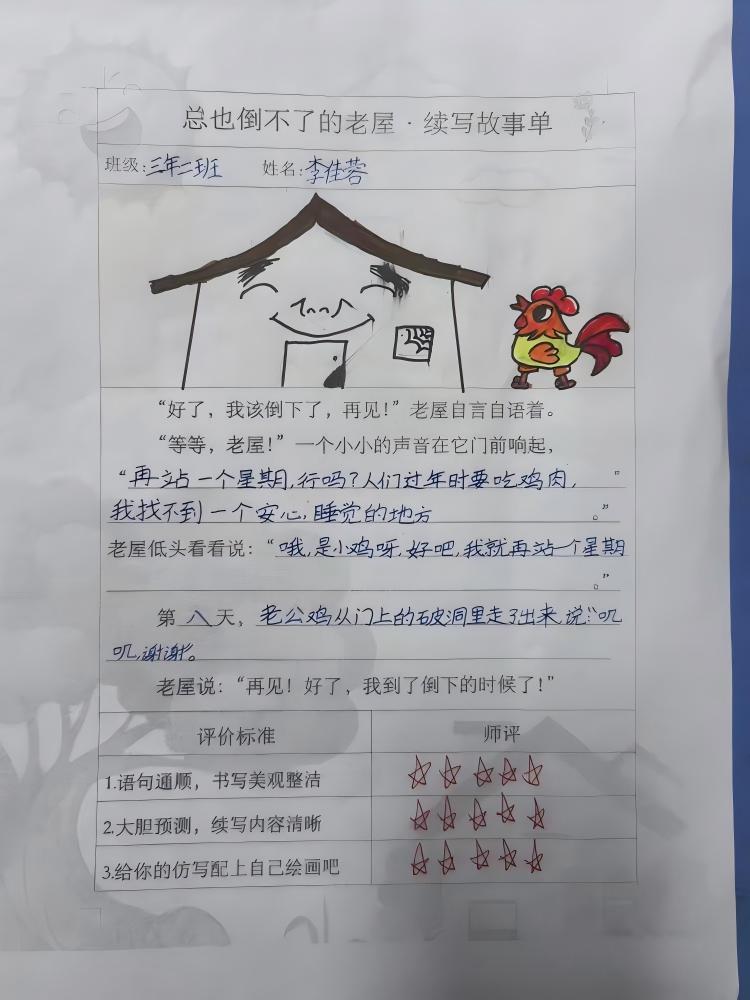 总也倒不了的老屋·续写故事单
班级:三年二班 姓名:李佳蓉
“好了，我该倒下了，再见！”老屋自言自语着。
“等等，老屋！”一个小小的声音在它门前响起，
“再站一个星期,行吗?人们过年时要吃鸡肉, ”
我找不到一个安心,睡觉的地方 。”
老屋低头看看说：“哦,是小鸡呀,好吧,我就再站一个星期
。”
第八天，老公鸡从门上的破洞里走了出来,说:“叽
叽,谢谢”。
老屋说：“再见！好了，我到了倒下的时候了！”
评价标准 师评
1.语句通顺，书写美观整洁
2.大胆预测，续写内容清晰
3.给你的仿写配上自己绘画吧